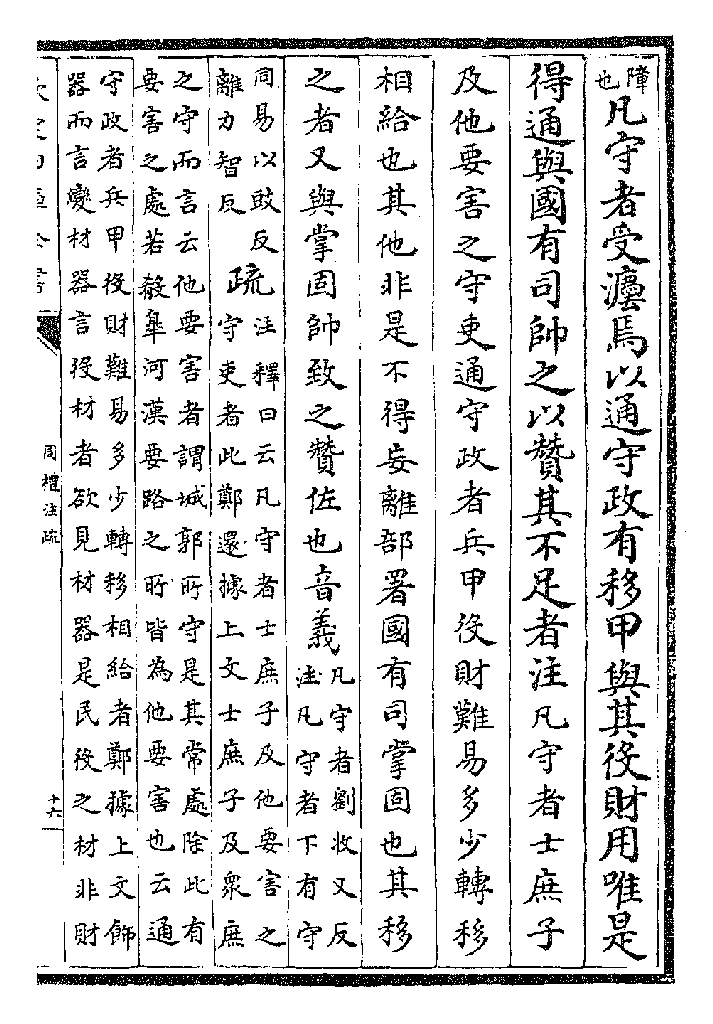 障也凡守者受灋焉以通守政有移甲與其役財用唯是
得通與國有司帥之以贊其不足者注凡守者士庶子
及他要害之守吏通守政者兵甲役財難易多少轉移
相給也其他非是不得妄離部署國有司掌固也其移
之者又與掌固帥致之贊佐也音義凡守者劉收又反
注凡守者下有守
同易以豉反
離力智反
疏注釋曰云凡守者士庶子及他要害之
守吏者此鄭還據上文士庶子及衆庶
之守而言云他要害者謂城郭所守是其常處除此有
要害之處若殽臯河漢要路之所皆為他要害也云通
守政者兵甲役財難易多少轉移相給者鄭據上文飾
器而言變材器言役材者欲見材器是民役之材非財
欽定四庫全書
周禮注疏
十六